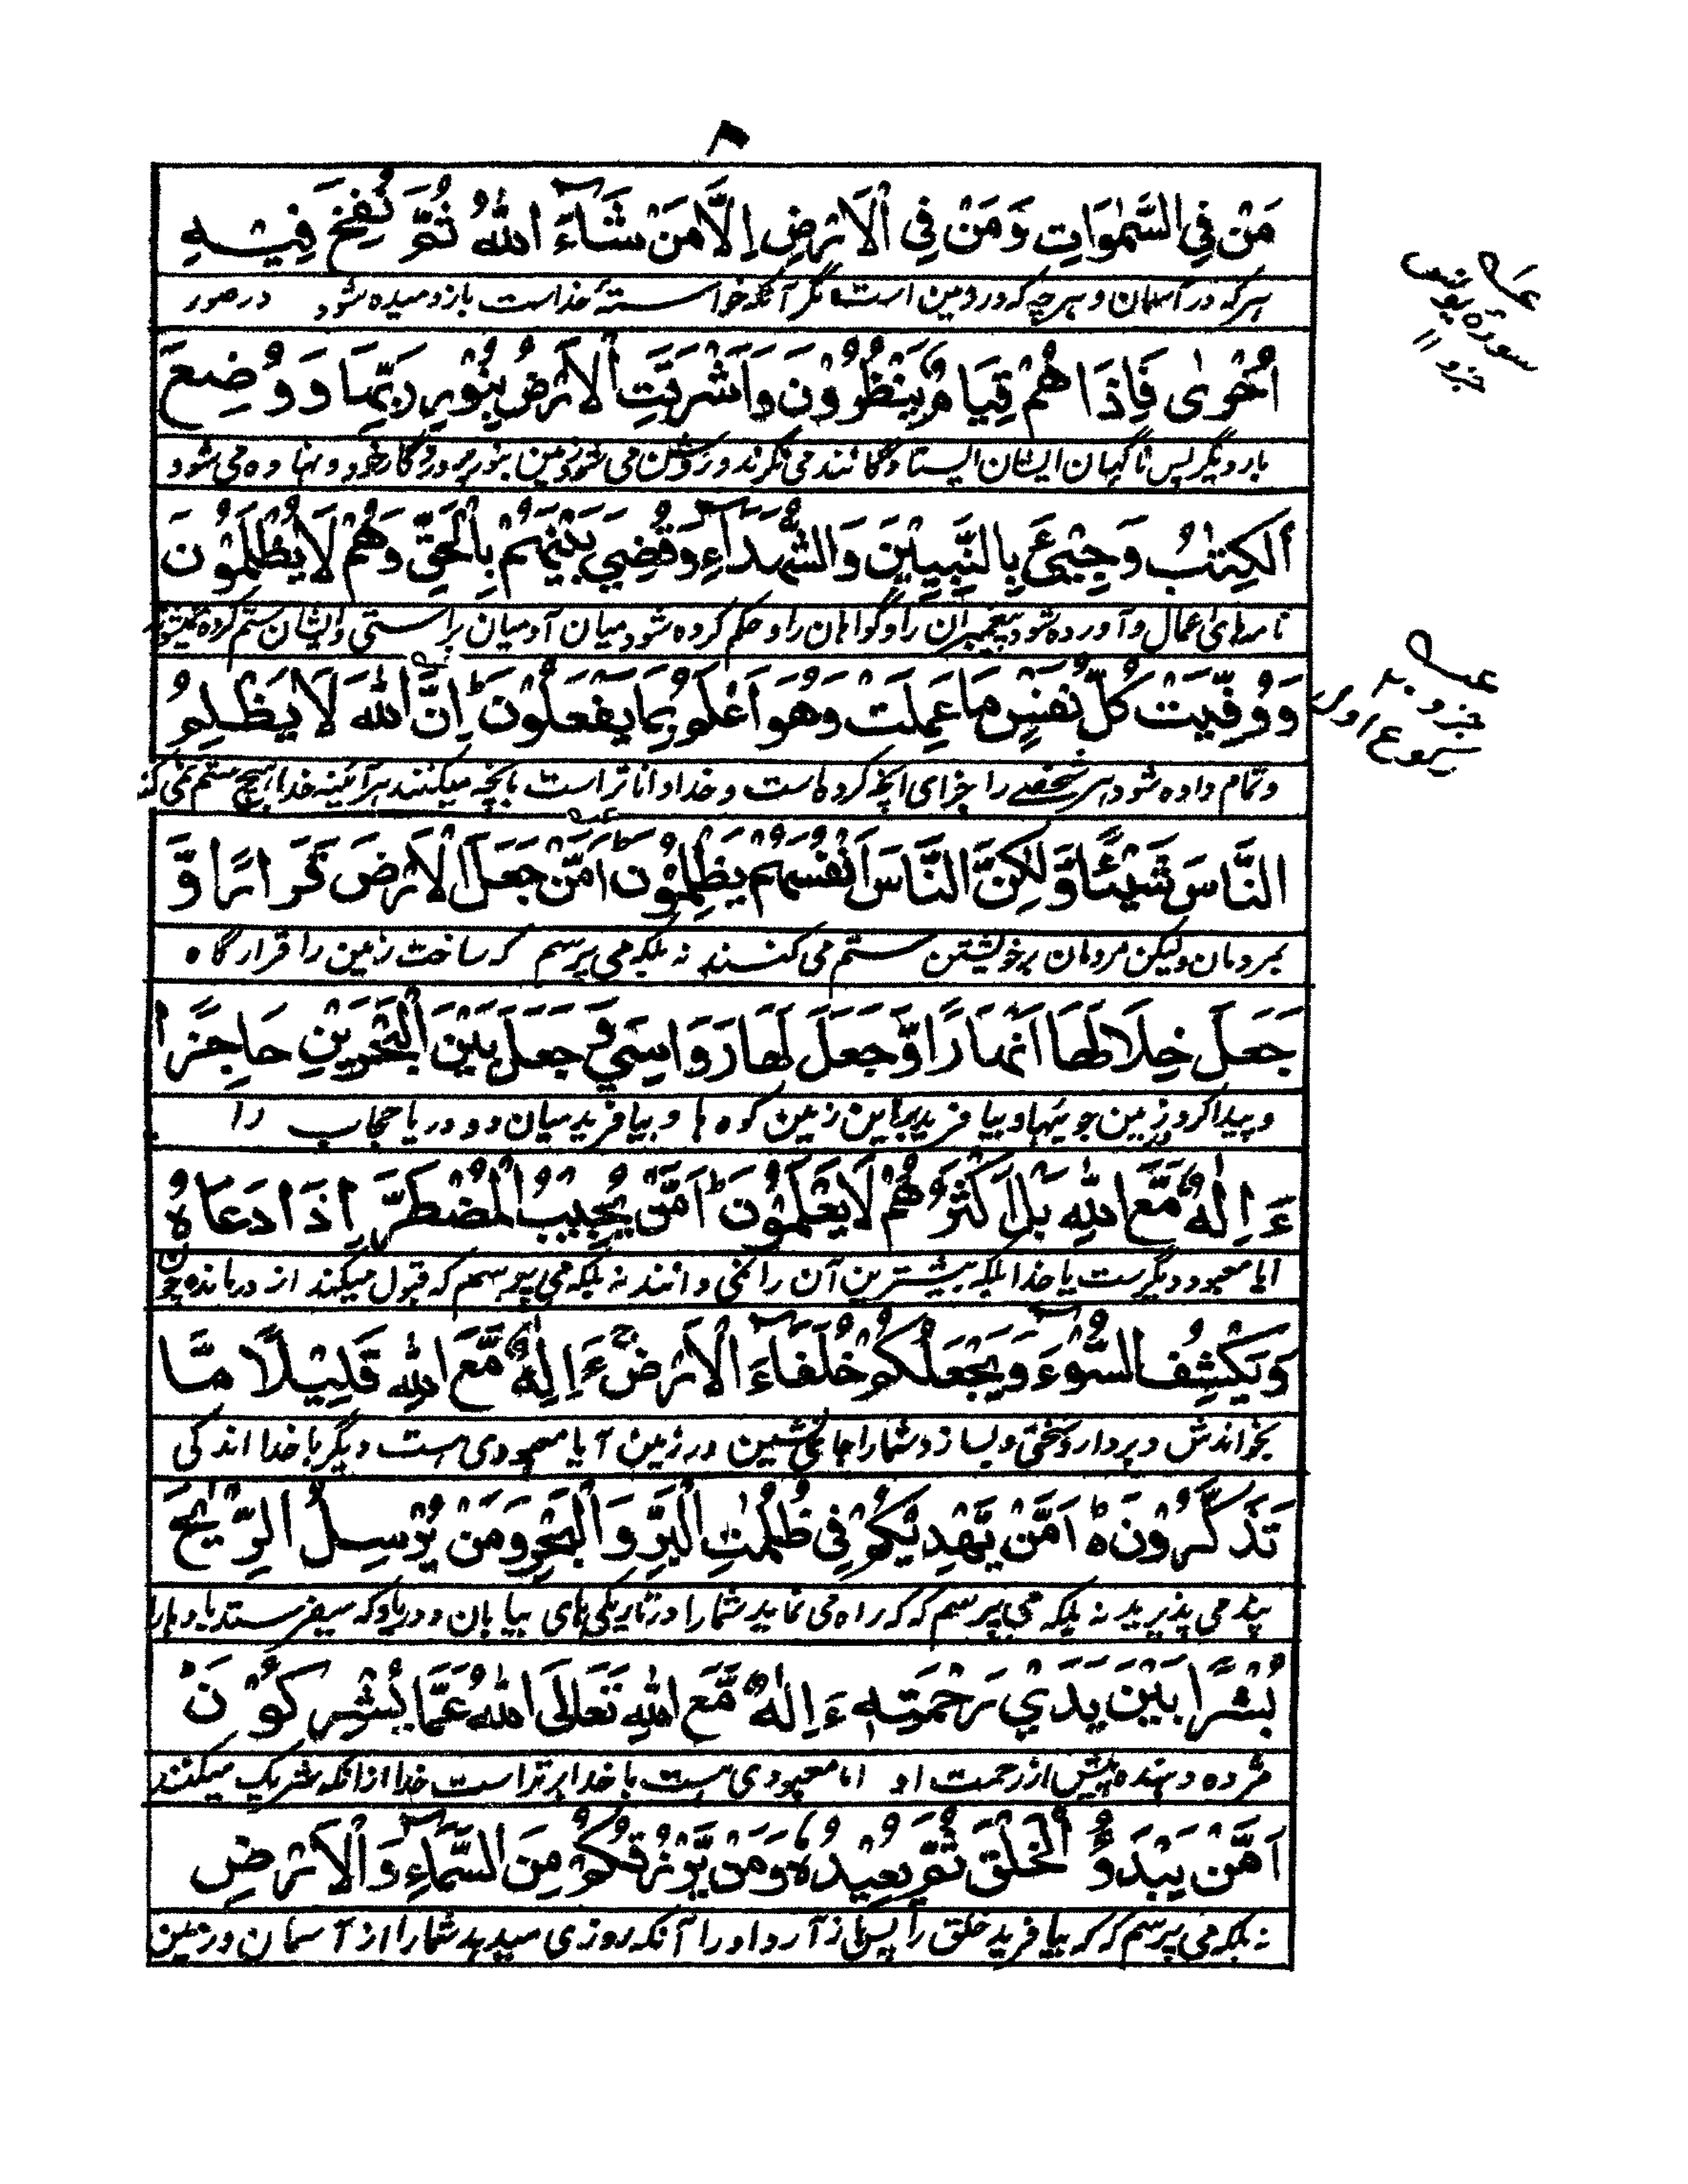 ۸
مَنْ فِي السَّمٰوَاتِ وَمَنْ فِي الْاَرْضِ اِلَّا مَنْ شَآءَ اللّٰهُ ثُمَّ نُفِخَ فِيْهِ
هر که در آسمان و هر چه که در زمین است مگر آنکه خواسته خداست باز دمیده شود در صور
اُخْرٰى فَاِذَا هُمْ قِيَامٌ يَنْظُرُوْنَ وَاَشْرَقَتِ الْاَرْضُ بِنُوْرِ رَبِّهَا وَوُضِعَ
بار دیگر پس ناگهان ایشان ایستادگانند می نگرند و روشن می شود زمین بنور پروردگار خود و نهاده می شود
الْكِتٰبُ وَجِيْءَ بِالنَّبِيّٖنَ وَالشُّهَدَآءِ وَقُضِيَ بَيْنَهُمْ بِالْحَقِّ وَهُمْ لَا يُظْلَمُوْنَ
نامه‌های اعمال و آورده شود پیغمبران را و گواهان را و حکم کرده شود میان آدمیان براستی و ایشان ستم کرده نمیشوند
وَوُفِّيَتْ كُلُّ نَفْسٍ مَا عَمِلَتْ وَهُوَ اَعْلَمُ بِمَا يَفْعَلُوْنَ ؕ اِنَّ اللّٰهَ لَا يَظْلِمُ
و تمام داده شود هر شخصے را جزای آنچه کرده است و خدا داناتر است بآنچه میکنند هر آئینه خدا هیچ ستم نمی کند
النَّاسَ شَيْئًا وَّلٰكِنَّ النَّاسَ اَنْفُسَهُمْ يَظْلِمُوْنَ ؕ اَمَّنْ جَعَلَ الْاَرْضَ قَرَارًا وَّ
بمردمان ولیکن مردمان بر خویشتن ستم می کنند نه بلکه می پرسم که ساخت زمین را قرار گاه
جَعَلَ خِلَالَهَا اَنْهَارًا وَّجَعَلَ لَهَا رَوَاسِيَ وَجَعَلَ بَيْنَ الْبَحْرَيْنِ حَاجِزًا
و پیدا کرد زمین جویها و بیافرید براین زمین کوه ها و بیافرید میان دو دریا حجاب را
ءَاِلٰهٌ مَّعَ اللّٰهِ بَلْ اَكْثَرُهُمْ لَا يَعْلَمُوْنَ ؕ اَمَّنْ يُّجِيْبُ الْمُضْطَرَّ اِذَا دَعَاهُ
ایا معبود دیگرست با خدا بلکه بیشترین آن را نمی دانند نه بلکه می پرسم که قبول میکند از درمانده چون
وَيَكْشِفُ السُّوْٓءَ وَيَجْعَلُكُمْ خُلَفَآءَ الْاَرْضِ ءَاِلٰهٌ مَّعَ اللّٰهِ قَلِيْلًا مَّا
بخواندش و بردارد سختی و بسازد شمارا جانشین در زمین آیا معبودی هست دیگر با خدا اندکی
تَذَكَّرُوْنَ ؕ اَمَّنْ يَّهْدِيْكُمْ فِى ظُلُمٰتِ الْبَرِّ وَالْبَحْرِ وَمَنْ يُّرْسِلُ الرِّيٰحَ
پند می پذیرید نه بلکه می پرسم که که راه می نماید شمارا در تاریکی های بیابان و دریا و که میفرستد بادهارا
بُشْرًا بَيْنَ يَدَيْ رَحْمَتِهٖ ءَاِلٰهٌ مَّعَ اللّٰهِ تَعَالَى اللّٰهُ عَمَّا يُشْرِكُوْنَ
مژده دهنده پیش از رحمت او ایا معبودی هست با خدا برتر است خدا ازانکه شریک میکنند
اَمَّنْ يَبْدَؤُا الْخَلْقَ ثُمَّ يُعِيْدُهٗ وَمَنْ يَّرْزُقُكُمْ مِنَ السَّمَآءِ وَالْاَرْضِ
نه بلکه می پرسم که که بیافرید خلق را پس باز آرد او را آنکه روزی میدهد شمارا از آسمان و زمین
سورۃ یونس
جزو ۱۱
جزو ۲۰
رکوع اول